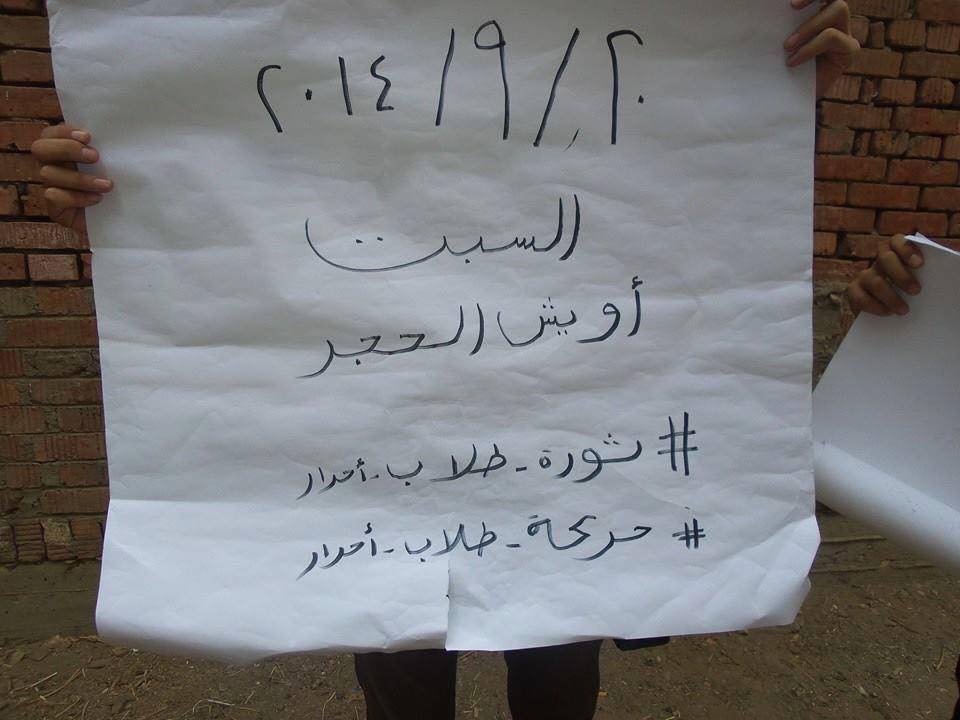 ٢٠/٩/٢٠١٤
السبت
أويش الحجر
#ثورة-طلاب-أحرار
#حركة-طلاب-أحرار